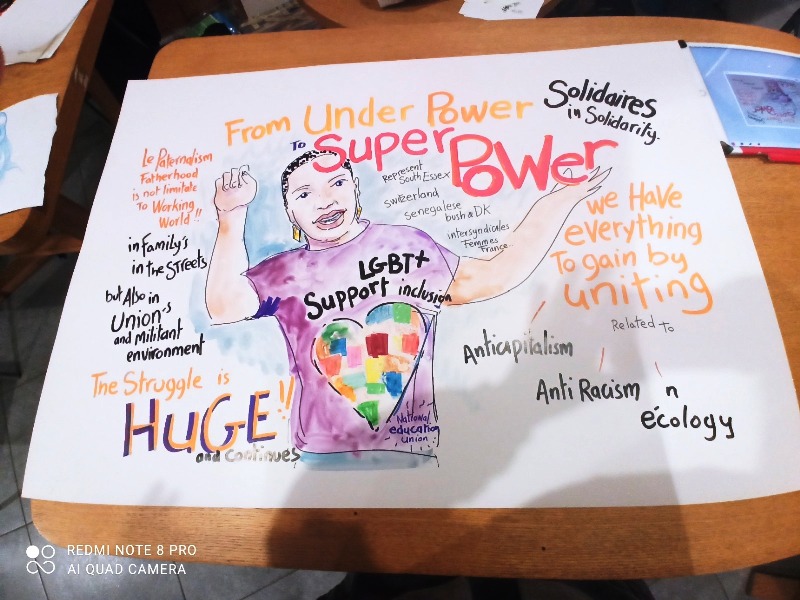 From Under Power
To Super PoWer
Solidaires
in Solidarity.
Le Paternalism
Fatherhood
is not limitate
To Working
World!!
in Family's
in the Streets
but Also in
Union's
and militant
environment
The Struggle is
HuGE!!
and continues
Represent
South Essex
switzerland
senegalese
bush & DK
intersyndicales
Femmes
France
LGBT+
Support inclusion
National
education
union
we Have
everything
To gain by
uniting
Related to
Anticapitalism
Anti Racism n
écology
REDMI NOTE 8 PRO
AI QUAD CAMERA